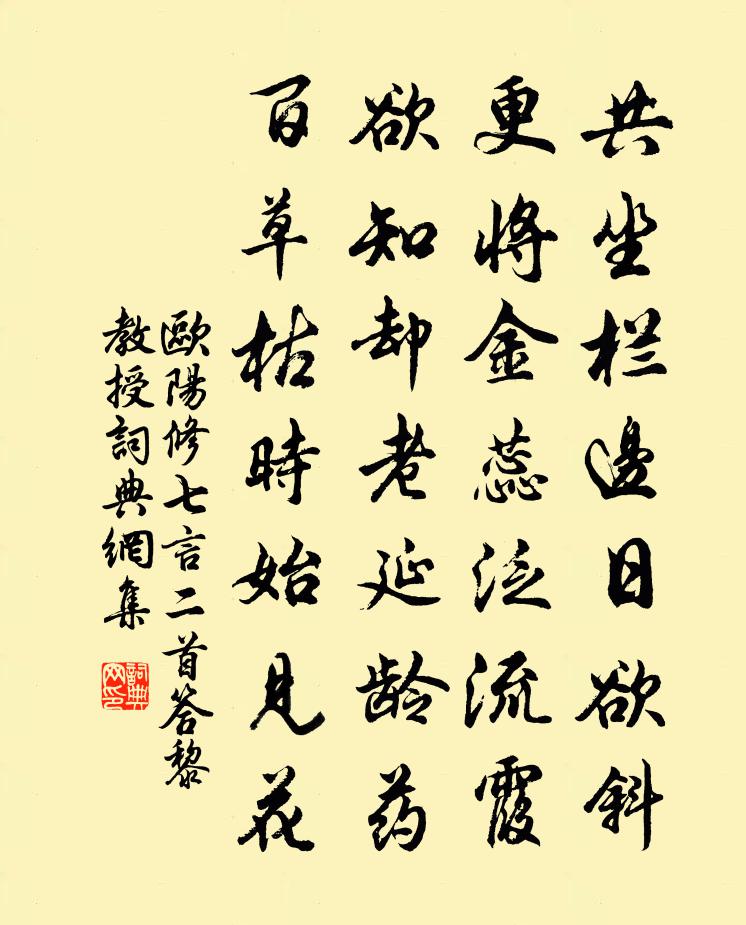 共坐栏邊日欲斜
更將金蕊泛流霞
欲知却老延龄药
百草枯時始見花
歐陽修七言二首答黎
教授詞典網集
詞典
网印